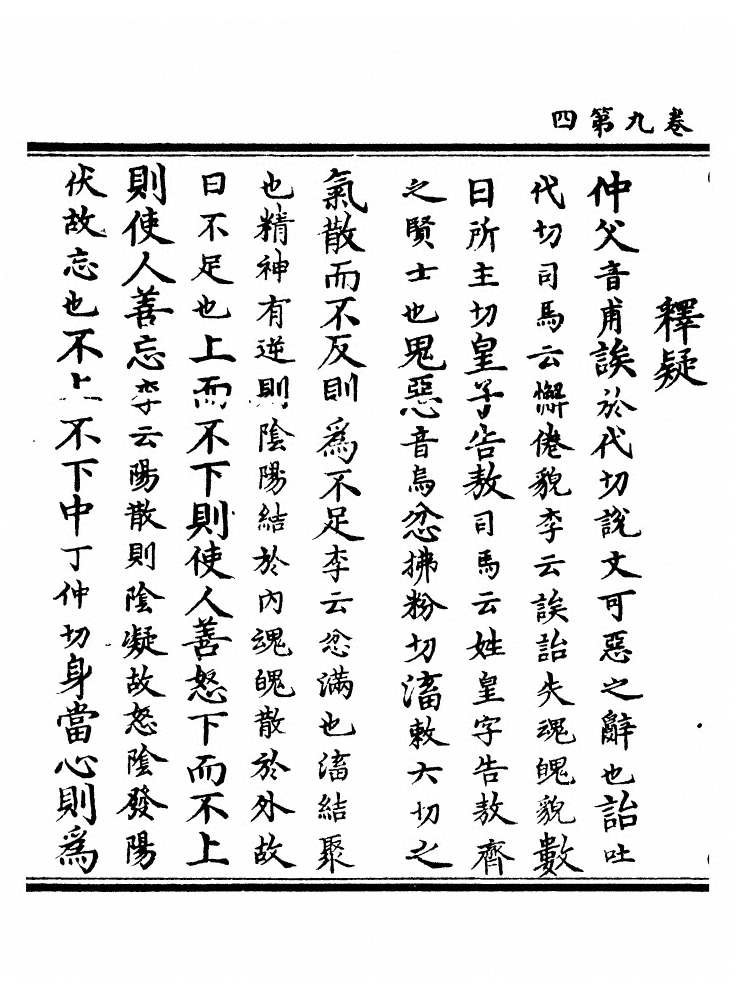 卷九第四
釋疑
仲父音甫誒於代切說文可惡之辭也詒吐
代切司馬云懈倦貌李云誒詒失魂魄貌數
日所主切皇子告敖司馬云姓皇字告敖齊
之賢士也鬼惡音烏忿拂粉切滀敕六切之
氣散而不反則為不足李云忿滿也滀結聚
也精神有逆則陰陽結於內魂魄散於外故
曰不足也上而不下則使人善怒下而不上
則使人善忘李云陽散則陰凝故怒陰發陽
伏故忘也不上不下中丁仲切身當心則為